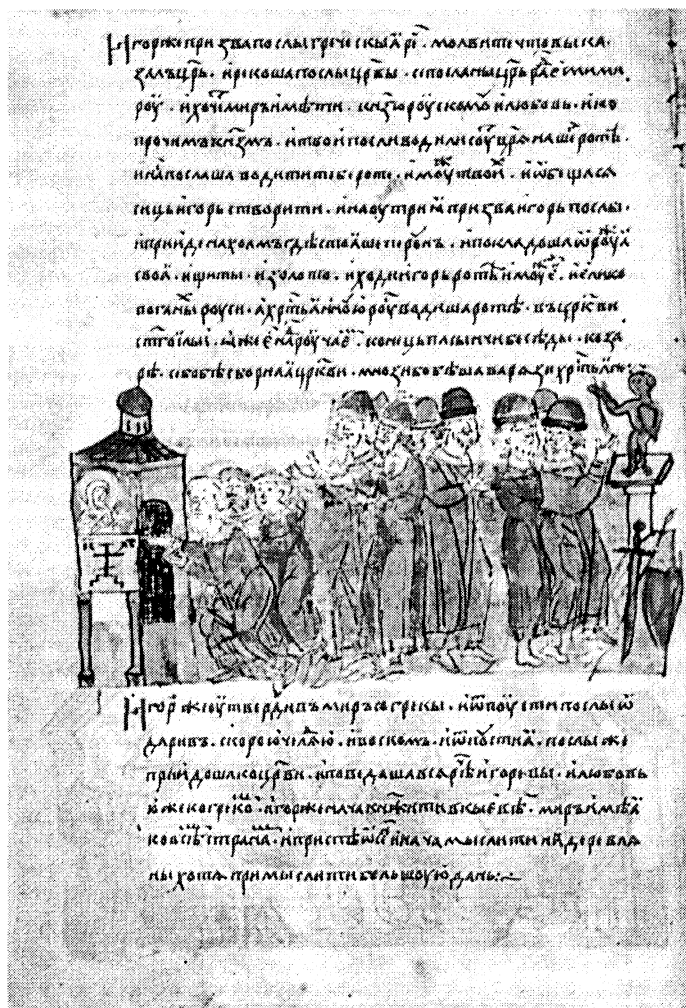 Игор же призва послы греческыꙗ рⷱ҇е · молвите что вы ка
залъ цр҃ь · и рекоша послы цр҃вы · се посла ны цр҃ь радъ е҇ ми
роу · и хочеⷮ миръ имѣти · кн҃зю роускомоу и любовь · и ко
прочимъ кн҃змъ · и твои посли водили соуⷮ цр҃ꙗ нашеⷢ҇ ротѣ ·
и нꙑ послаша водити тебе роте · и моуⷤ твоиⷯ · и ѡбещасꙗ
сице игорь створити · и наоутриꙗ призва игорь послы ·
и прииде на холмъ гдѣ стоꙗше пероунъ · и покладоша ѡроужⷤꙗ
своꙗ · и щиты · и золото · и ходи игорь ротѣ и моуⷤ е҇ · и елико
поганыⷯ роуси · а хрⷭ҇тьꙗноую роуⷭ҇ водиша ротѣ · въ цр҃кви
ст҃го ильи · ꙗже е҇ наⷣ роучаеⷨ · конець пасынчи беседы · коза
рѣ · се бо бѣ сборнаꙗ цр҃кви · мнози бо бѣша варꙗзи хрⷭ҇тьꙗне
Игорⷤ же оутвердивъ миръ со грекы · и ѿпоусти послы ѡ
даривъ · скорою · челꙗⷣю · и воскомъ · и ѿпоусти ꙗ · послы же
приидоша ко цр҃ви · и поведаша всꙗ рѣⷱ҇и игоревы · и любовь
юже ко грекоⷨ · игорⷤ же нача кнꙗжити в кыевѣ · миръ имѣꙗ
ко всѣⷨ странаⷨ · и приспѣ ѡсень и нача мыслити на дереълꙗ
ны хотꙗ примыслити большоую дань